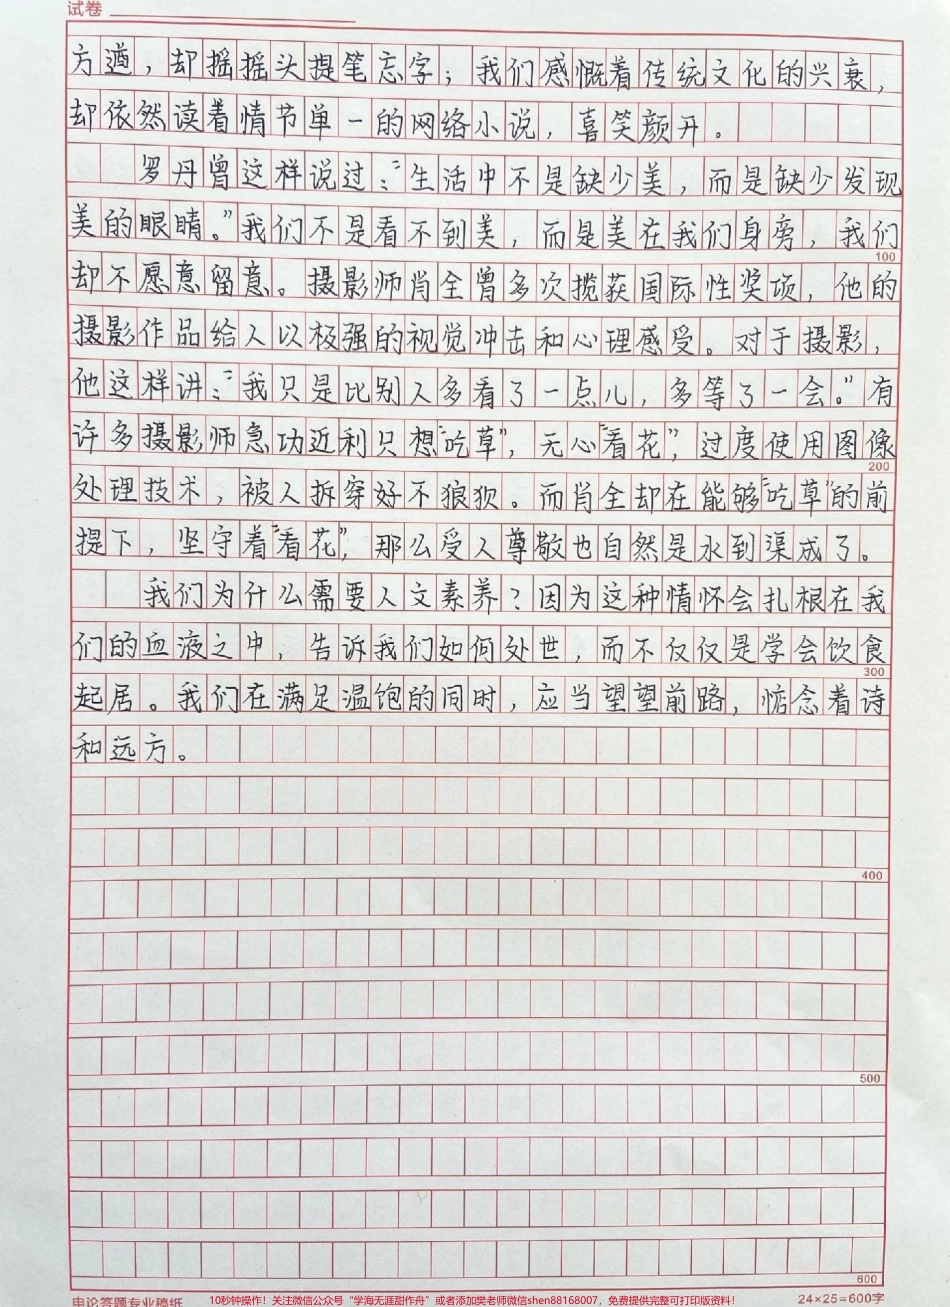 试卷
方遒，却摇摇头提笔忘字；我们感慨着传统文化的兴衰，
却依然读着情节单一的网络小说，喜笑颜开。
罗丹曾这样说过：“生活中不是缺少美，而是缺少发现
美的眼睛。”我们不是看不到美，而是美在我们身旁，我们
100
却不愿意留意。摄影师肖全曾多次揽获国际性奖项，他的
摄影作品给人以极强的视觉冲击和心理感受。对于摄影，
他这样讲：“我只是比别人多看了一点儿，多等了一会。”有
许多摄影师急功近利只想“吃草”，无心“看花”，过度使用图像
200
处理技术，被人拆穿好不狼狈。而肖全却在能够“吃草”的前
提下，坚守着“看花”，那么受人尊敬也自然是水到渠成了。
我们为什么需要人文素养？因为这种情怀会扎根在我
们的血液之中，告诉我们如何处世，而不仅仅是学会饮食
300
起居。我们在满足温饱的同时，应当望望前路，惦念着诗
和远方。
400
500
600
申论答题专业稿纸
10秒钟操作！关注微信公众号“学海无涯甜作舟”或者添加樊老师微信shen88168007，免费提供完整可打印版资料！
24×25=600字